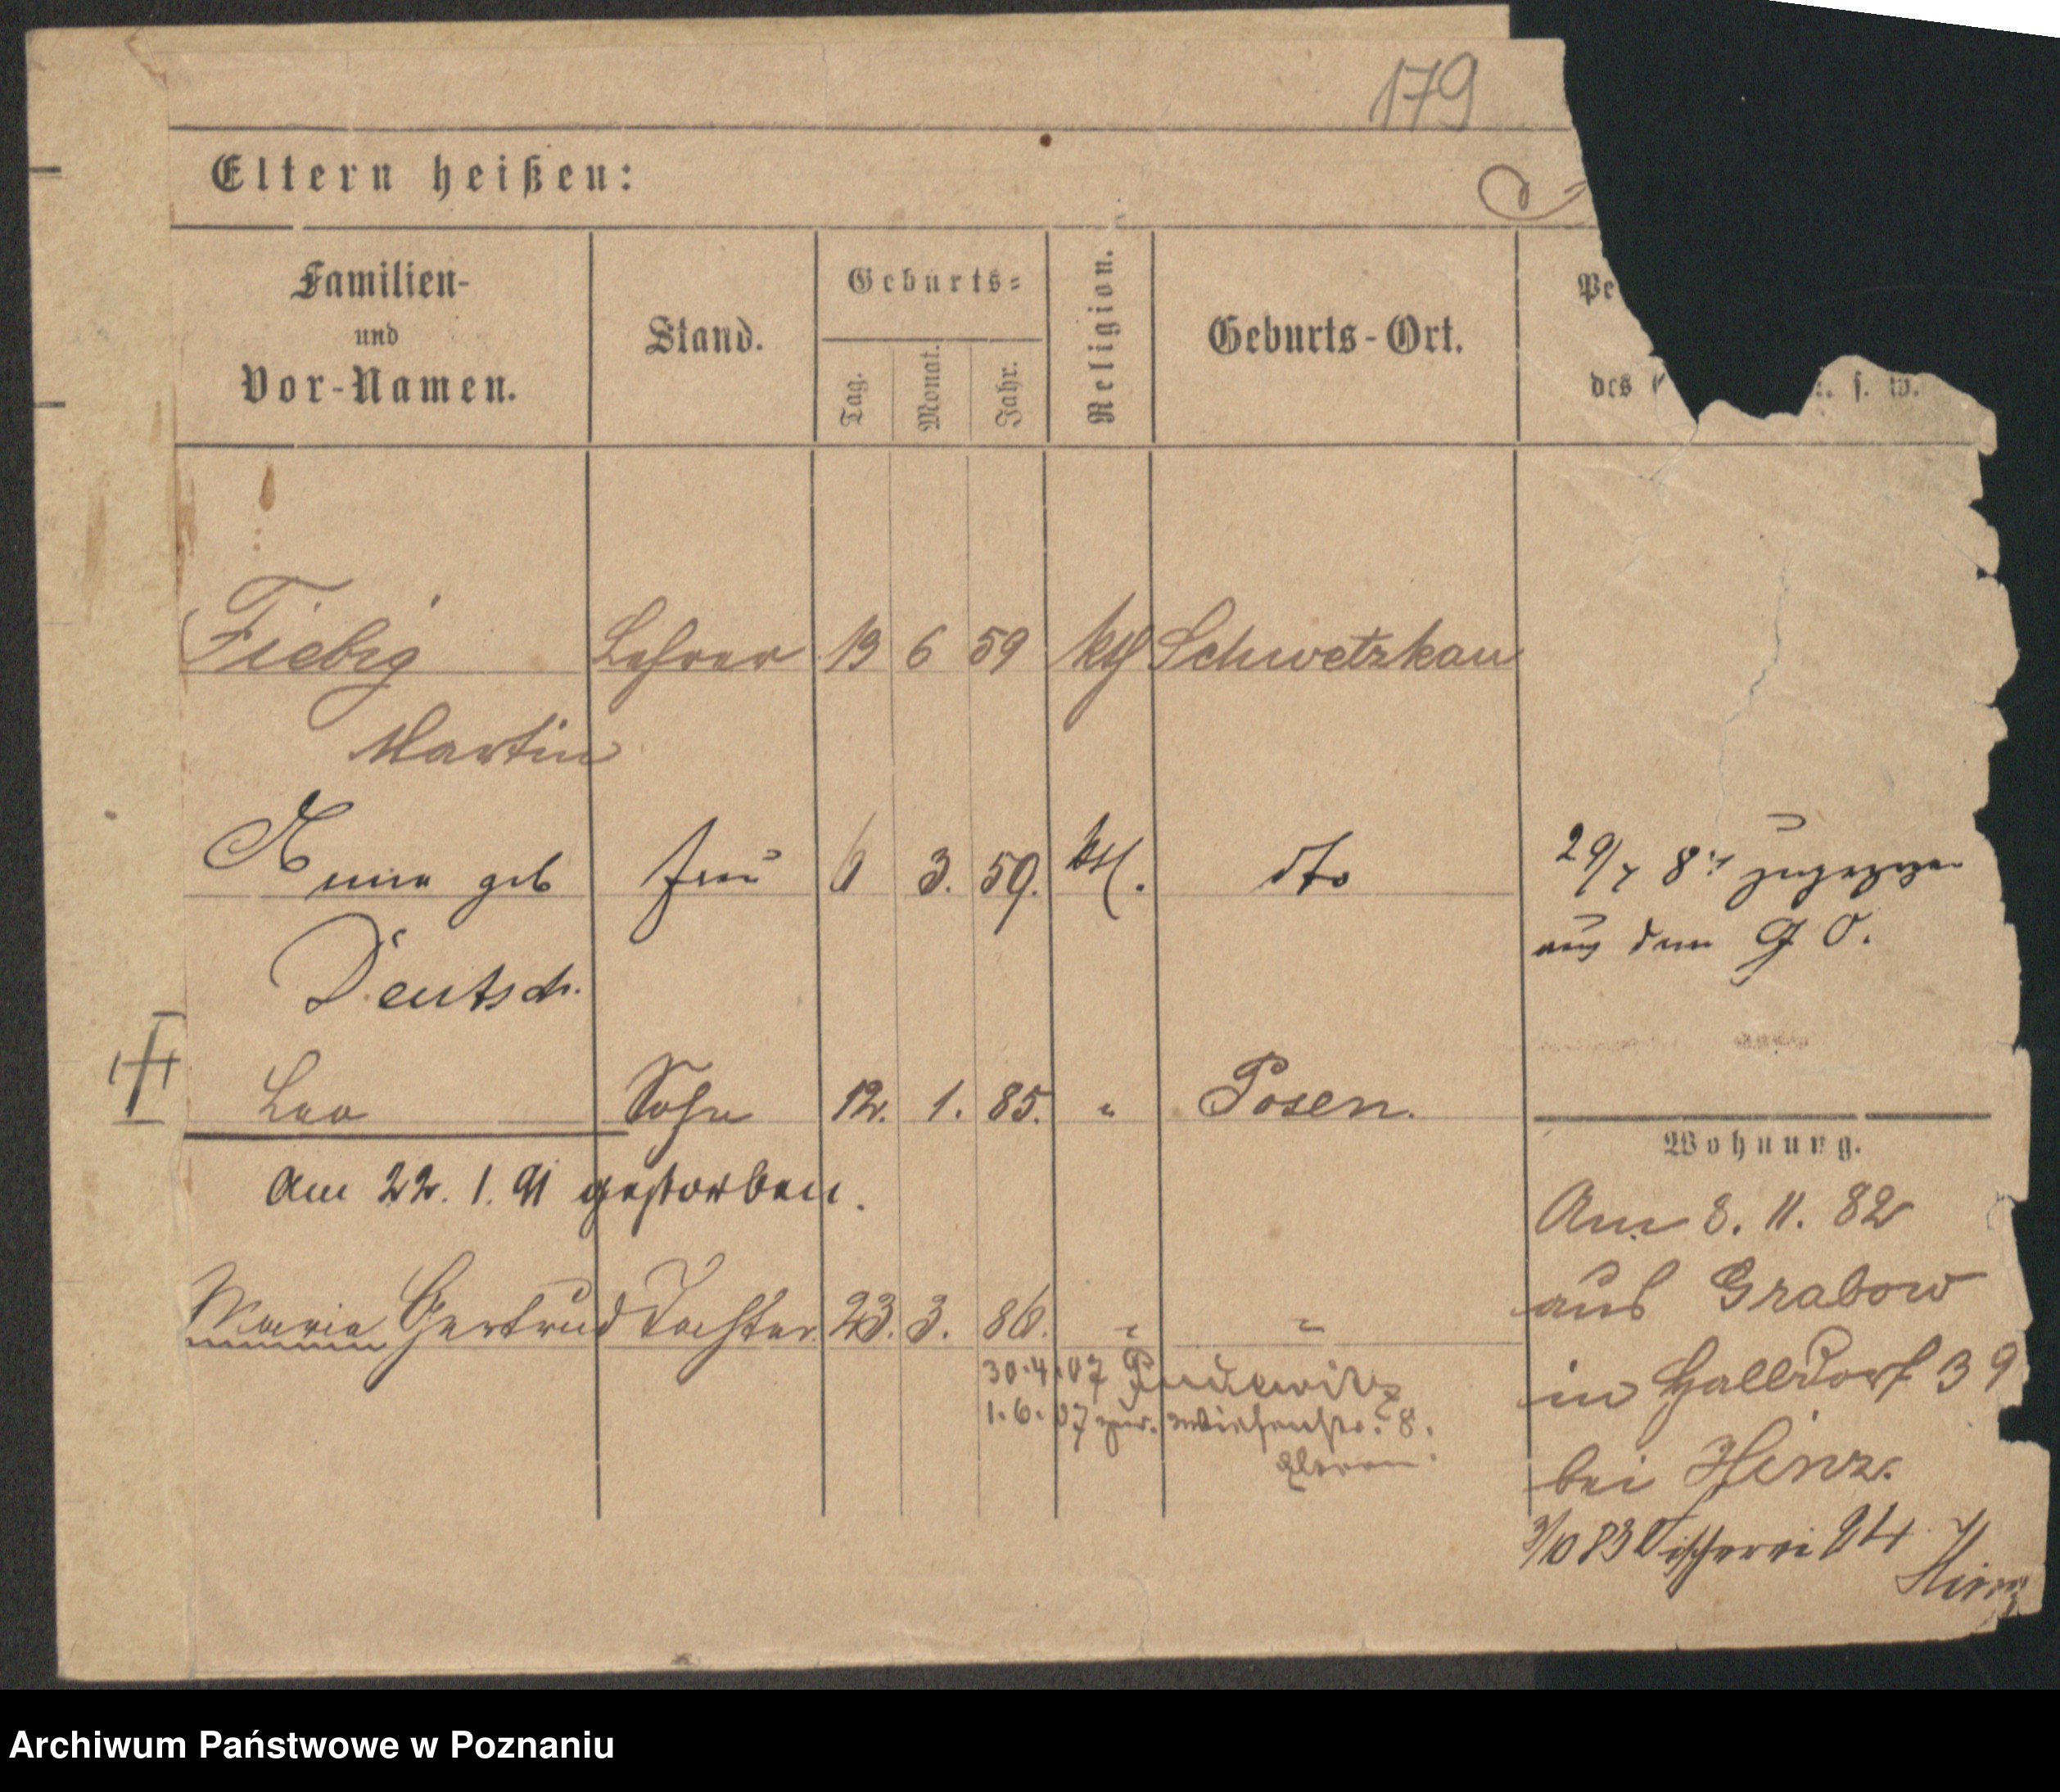 179
Eltern heißen:
Familien-
und
Vor-Namen.
Stand.
Geburts-
Tag.
Monat.
Jahr.
Religion.
Geburts-Ort.
Pe
des
s. w.
Fiebig Lehrer 13 6 59 kth Schwetzkau
Martin
Anna geb Frau 6 3. 59. kth. dto
Deutsch.
29/7 84 zugezogen
aus dem G. O.
Leo Sohn 12. 1. 85. " Posen.
Am 22. 1. 91 gestorben.
Maria Gertrud Tochter 23. 3. 86. " "
30.4.07 Pudewitz
1.6.07 zur. Wiesenstr. 8.
Eltern.
Wohnung.
Am 3. 11. 82
aus Grabow
in Halbdorf 39
bei Hinz.
3/10 83 Fischerei 24
Hinz
Archiwum Państwowe w Poznaniu